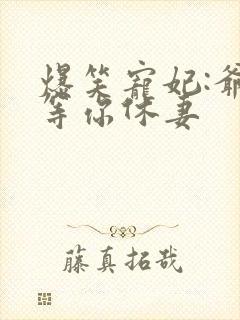 爆笑寵妃:爺
等你休妻
藤真拓哉